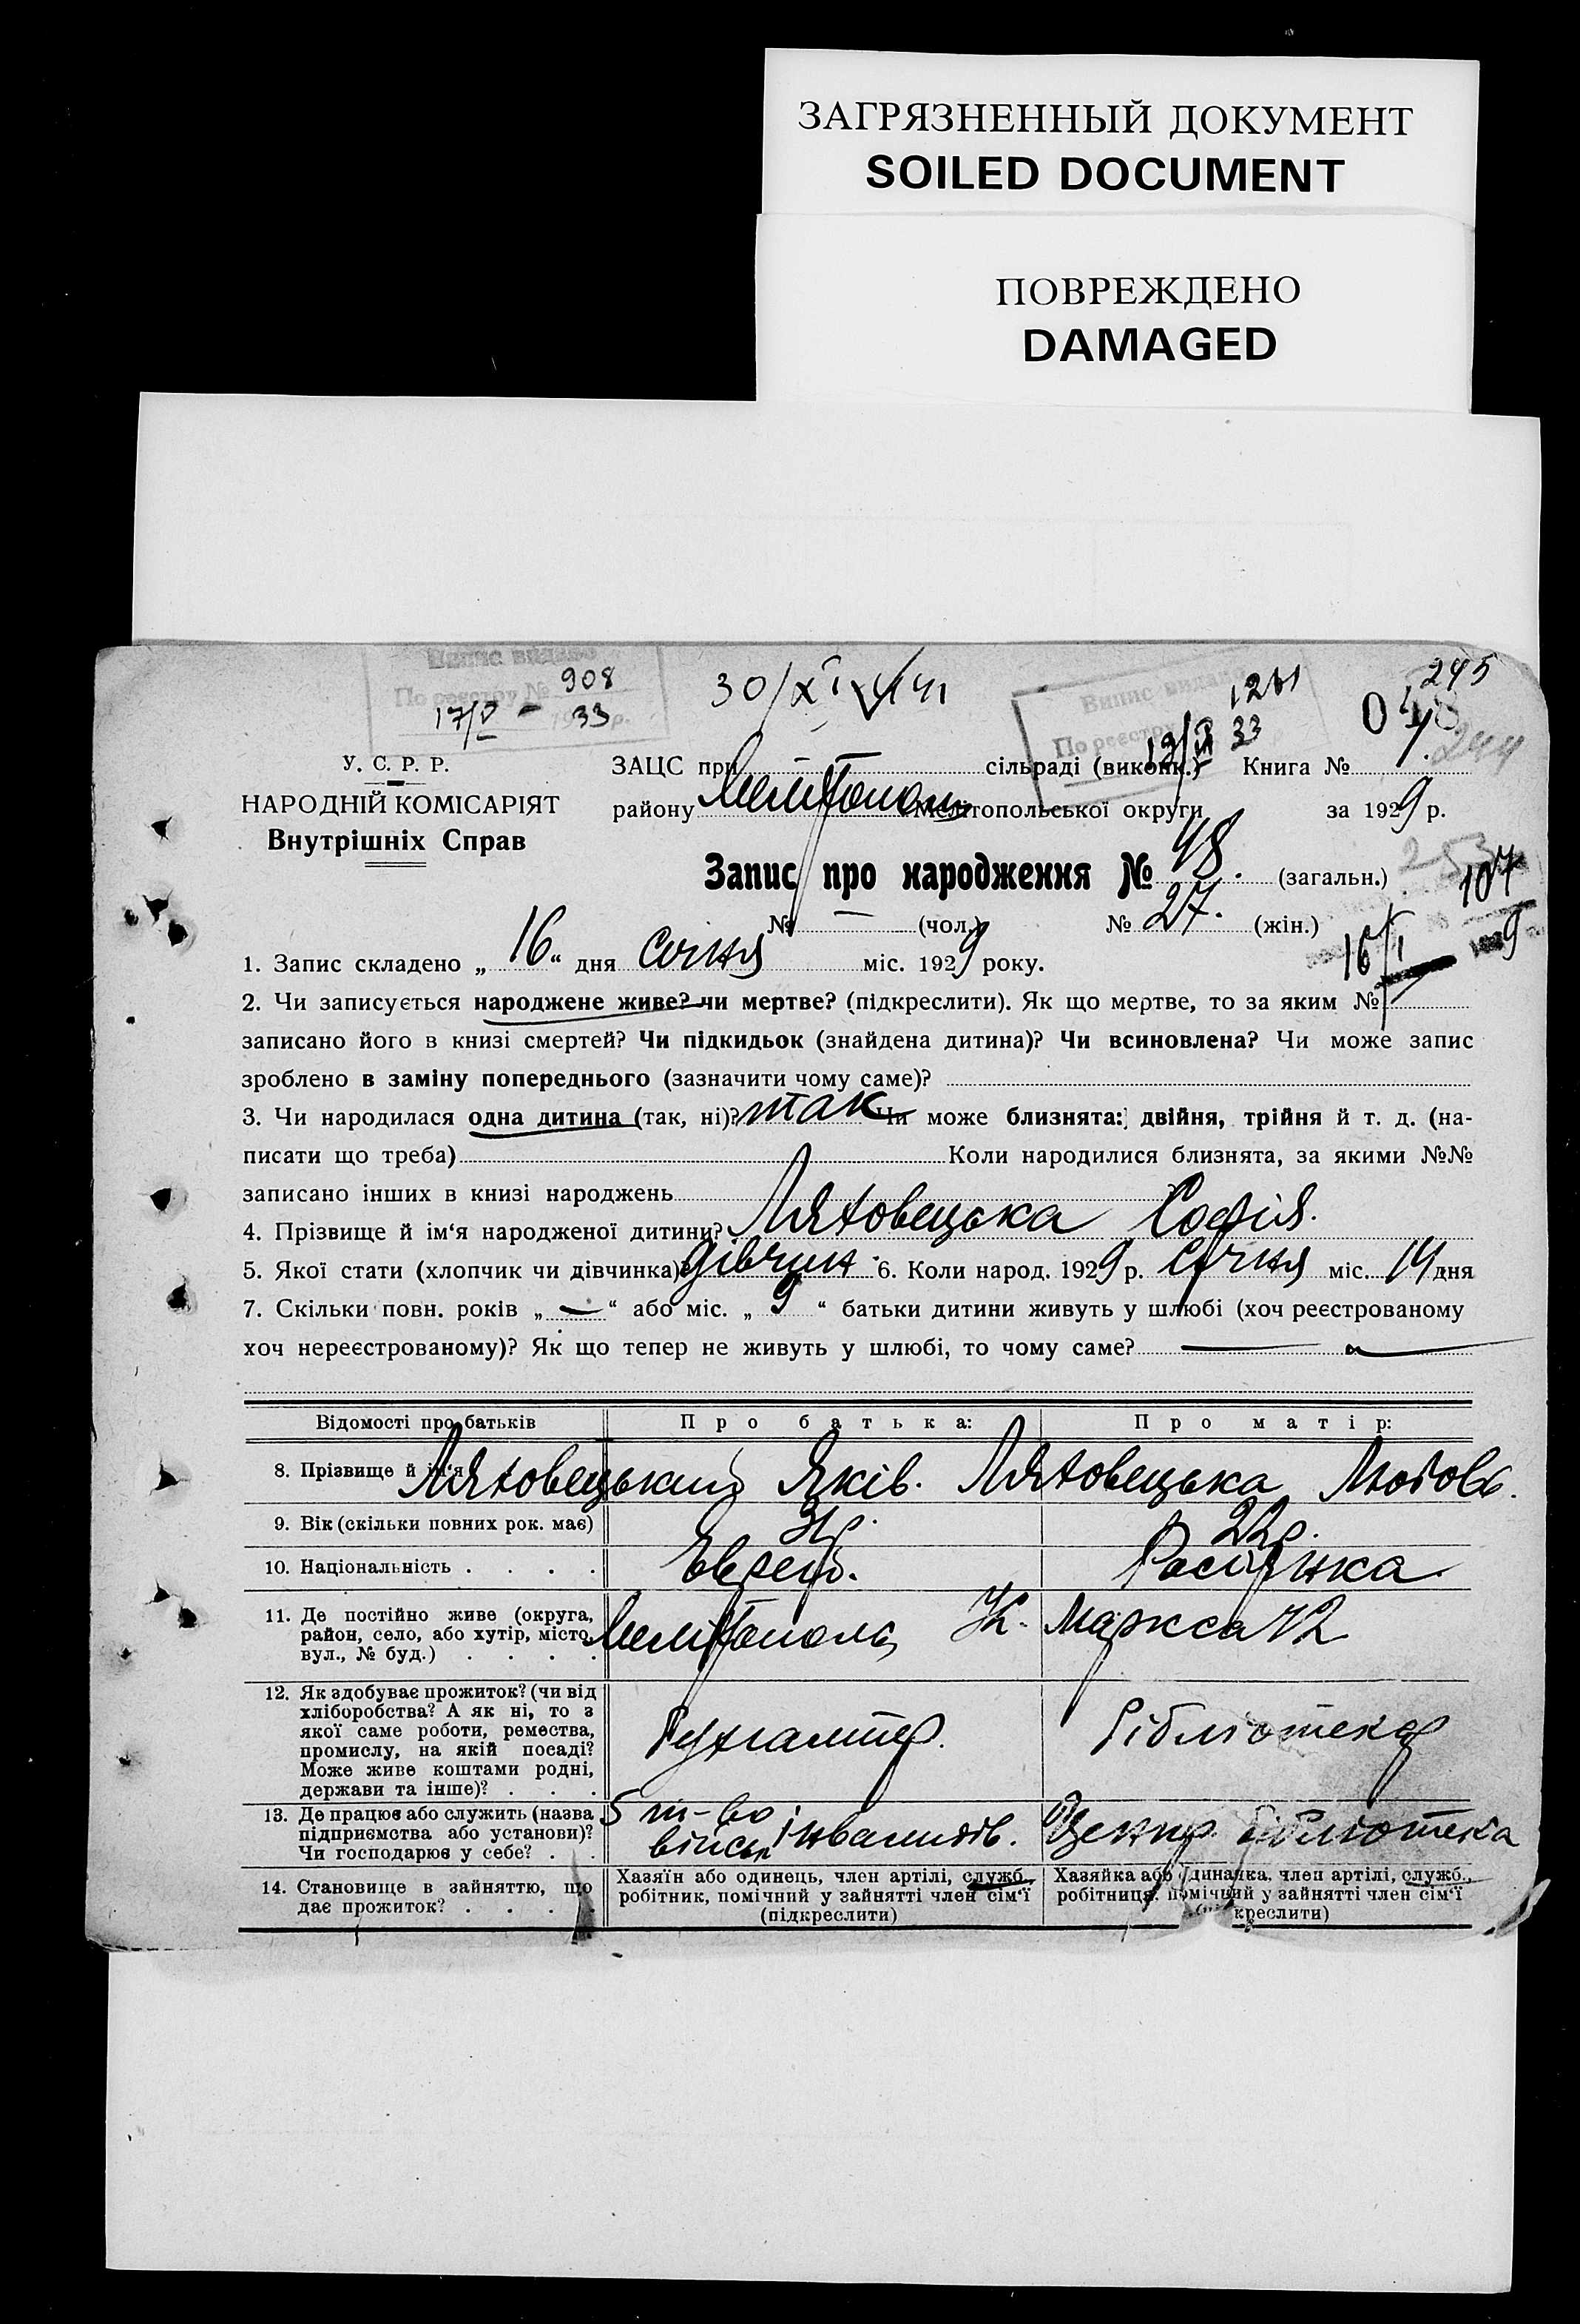 ЗАГРЯЗНЕННЫЙ ДОКУМЕНТ
SOILED DOCUMENT
ПОВРЕЖДЕНО
DAMAGED
Випис видано
По реєстру № 908
17/V - 33 р.
30/XI 41
Випис видано 1261
По реєстру
33
245
244
У. С. Р. Р.
НАРОДНІЙ КОМІСАРІЯТ
Внутрішніх Справ
ЗАЦС при сільраді (виконк.) Книга № 1.
району Мелітополь Мелітопольської округи за 1929 р.
Запис про народження № 48. (загальн.)
107
№ — (чол.) № 27. (жін.)
16/I 9
1. Запис складено „ 16 “ дня Січня міс. 1929 року.
2. Чи записується народжене живе? чи мертве? (підкреслити). Як що мертве, то за яким №
записано його в книзі смертей? Чи підкидьок (знайдена дитина)? Чи всиновлена? Чи може запис
зроблено в заміну попереднього (зазначити чому саме)?
3. Чи народилася одна дитина (так, ні)? так Чи може близнята: двійня, трійня й т. д. (на-
писати що треба) Коли народилися близнята, за якими №№
записано інших в книзі народжень
4. Прізвище й ім‘я народженої дитини? Ляховецька Софія.
5. Якої стати (хлопчик чи дівчинка)? дівчин. 6. Коли народ. 1929 р. Січня міс. 14 дня
7. Скільки повн. років „ — “ або міс. „ 9 “ батьки дитини живуть у шлюбі (хоч реєстрованому
хоч нереєстрованому)? Як що тепер не живуть у шлюбі, то чому саме? —
Відомості про батьків Про батька: Про матір:
8. Прізвище й ім‘я Ляховецький Яків. Ляховецька Любов.
9. Вік (скільки повних рок. має) 31 р. 22 р.
10. Національність . . . . Еврей. Росіянка.
11. Де постійно живе (округа,
район, село, або хутір, місто,
вул., № буд.) . . . . Мелітополь, К. Маркса 72
12. Як здобуває прожиток? (чи від
хліборобства? А як ні, то з
якої саме роботи, ремества,
промислу, на якій посаді?
Може живе коштами родні,
держави та інше)? . . . Бухгалтер. Бібліотекар
13. Де працює або служить (назва
підприємства або установи)?
Чи господарює у себе? . . т-во військ інвалидів. Центр. бібліотека
14. Становище в зайняттю, що
дає прожиток? . . . .
Хазяїн або одинець, член артілі, служб.,
робітник, помічний у зайнятті член сім‘ї
(підкреслити)
Хазяйка або одиначка, член артілі, служб.,
робітниця, помічний у зайнятті член сім‘ї
креслити)